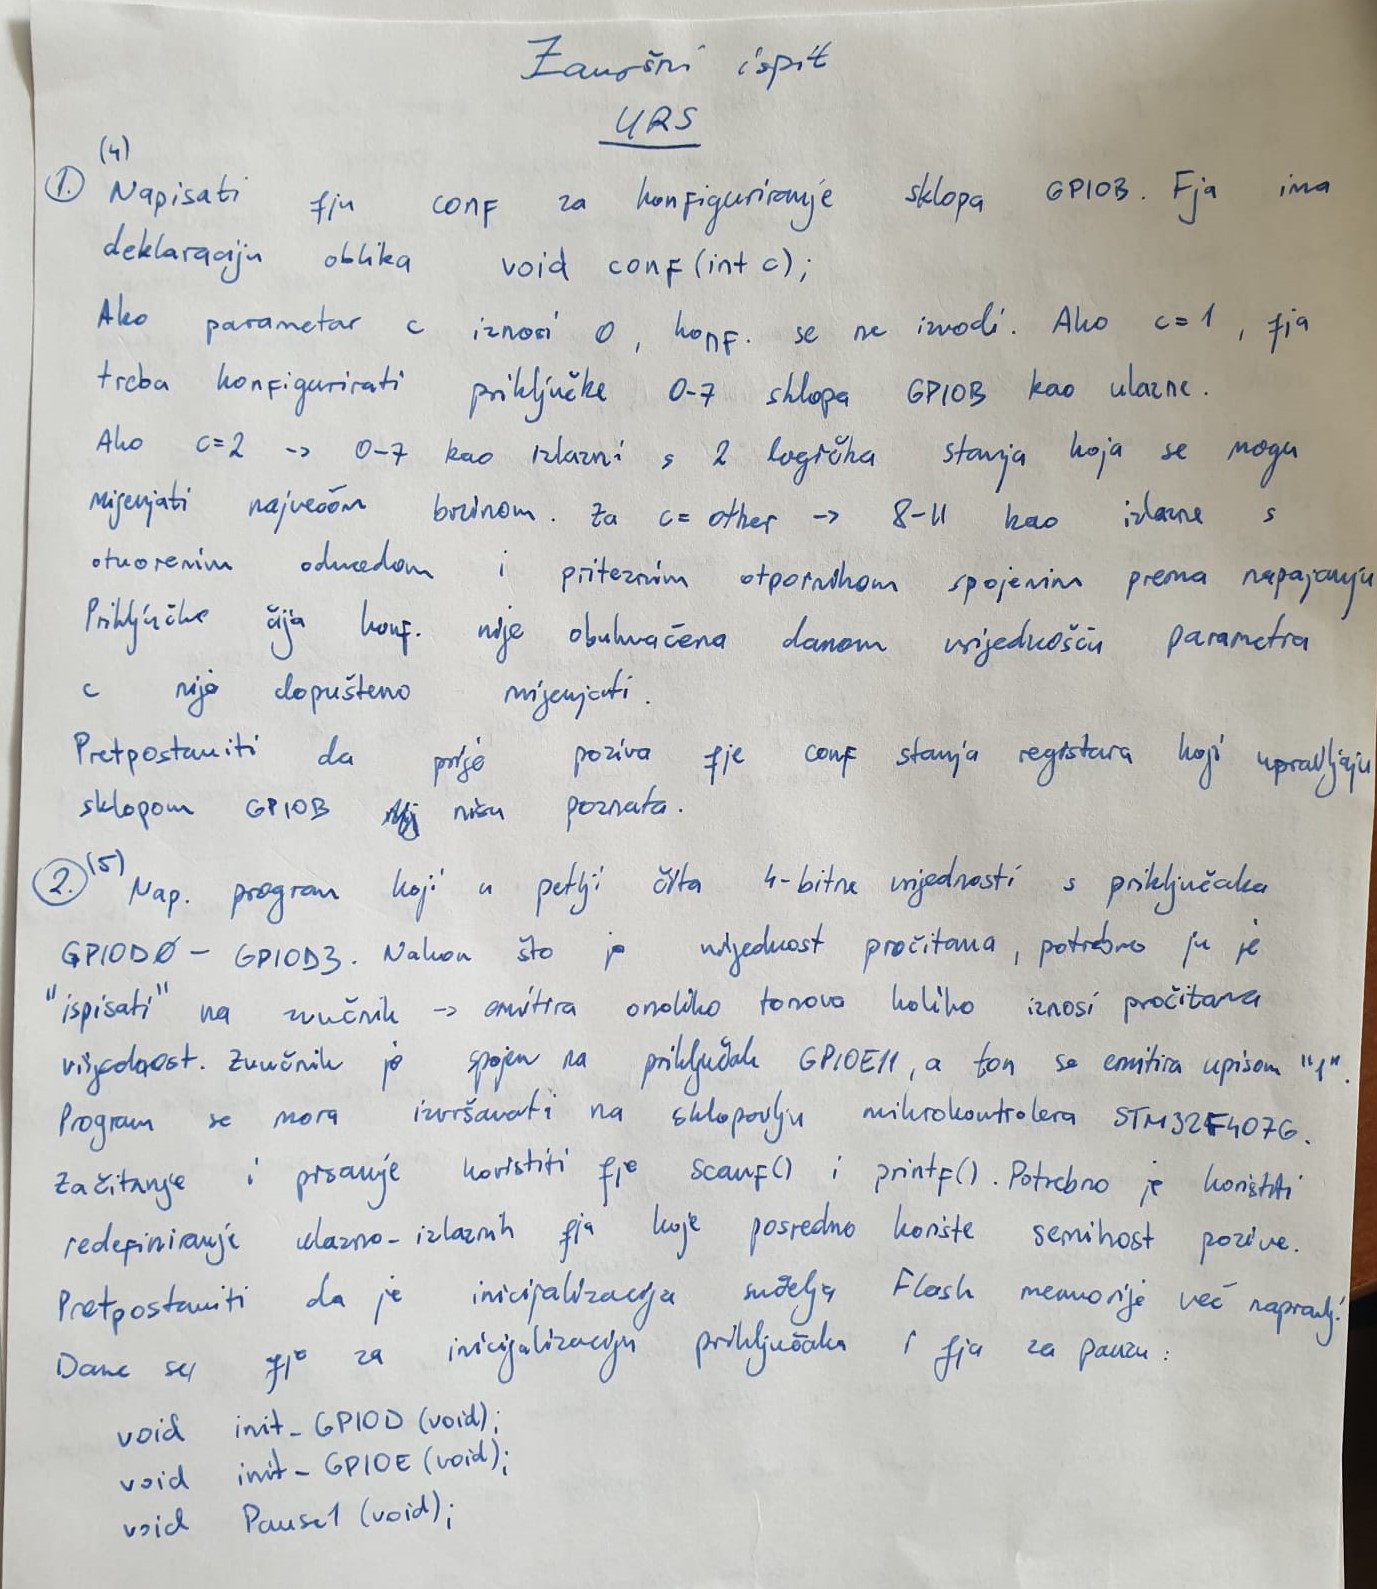 Završni ispit
URS
(4)
1. Napisati fju conf za konfiguriranje sklopa GPIOB. Fja ima
deklaraciju oblika void conf(int c);
Ako parametar c iznosi 0, konf. se ne izvodi. Ako c=1, fja
treba konfigurirati priključke 0-7 sklopa GPIOB kao ulazne.
Ako c=2 -> 0-7 kao izlazni s 2 logička stanja koja se mogu
mijenjati najvećom brzinom. Za c= other -> 8-11 kao izlazne s
otvorenim odvodom i priteznim otpornikom spojenim prema napajanju
Priključke čija konf. nije obuhvaćena danom vrijednošću parametra
c nije dopušteno mijenjati.
Pretpostaviti da prije poziva fje conf stanja registara koji upravljaju
sklopom GPIOB nisu poznata.
2. (5) Nap. program koji u petlji čita 4-bitne vrijednosti s priključaka
GPIOD0 - GPIOD3. Nakon što je vrijednost pročitana, potrebno ju je
"ispisati" na zvučnik -> emitira onoliko tonova koliko iznosi pročitana
vrijednost. Zvučnik je spojen na priključak GPIOE11, a ton se emitira upisom "1".
Program se mora izvršavati na sklopovlju mikrokontrolera STM32F407G.
Za čitanje i pisanje koristiti fje scanf() i printf(). Potrebno je koristiti
redefiniranje ulazno-izlaznih fja koje posredno koriste semihost pozive.
Pretpostaviti da je inicijalizacija sučelja Flash memorije već napravlj.
Dane su fje za inicijalizaciju priključaka i fja za pauzu:
void init_GPIOD (void);
void init_GPIOE (void);
void Pause1 (void);